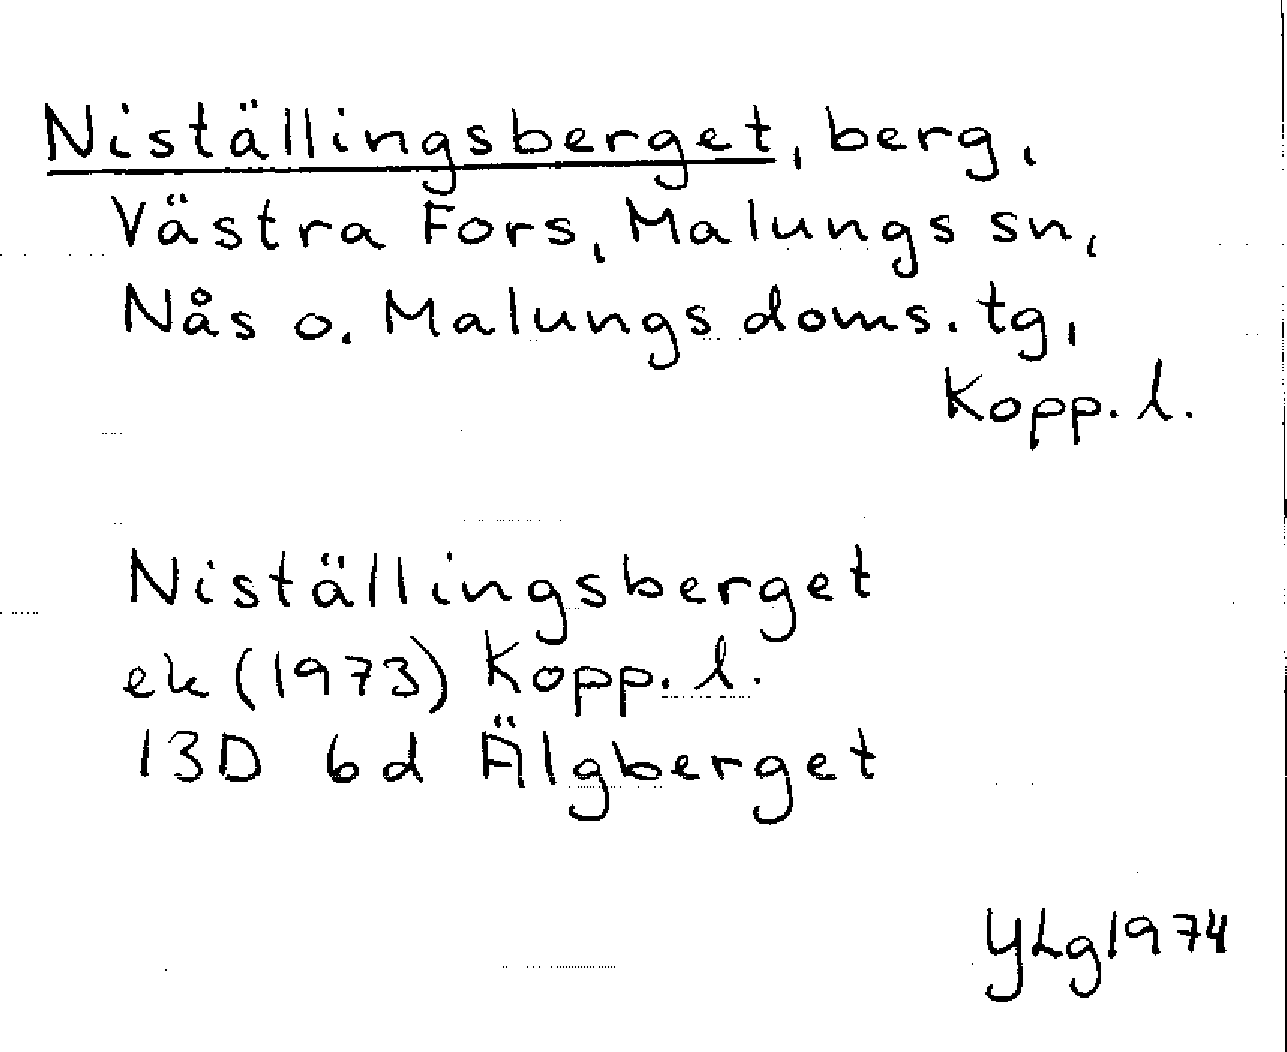 Niställingsberget, berg,
Västra Fors, Malungs sn,
Nås o. Malungs doms. tg,
Kopp. l.
Niställingsberget
ek (1973) Kopp. l.
13D 6d Älgberget
YLg 1974